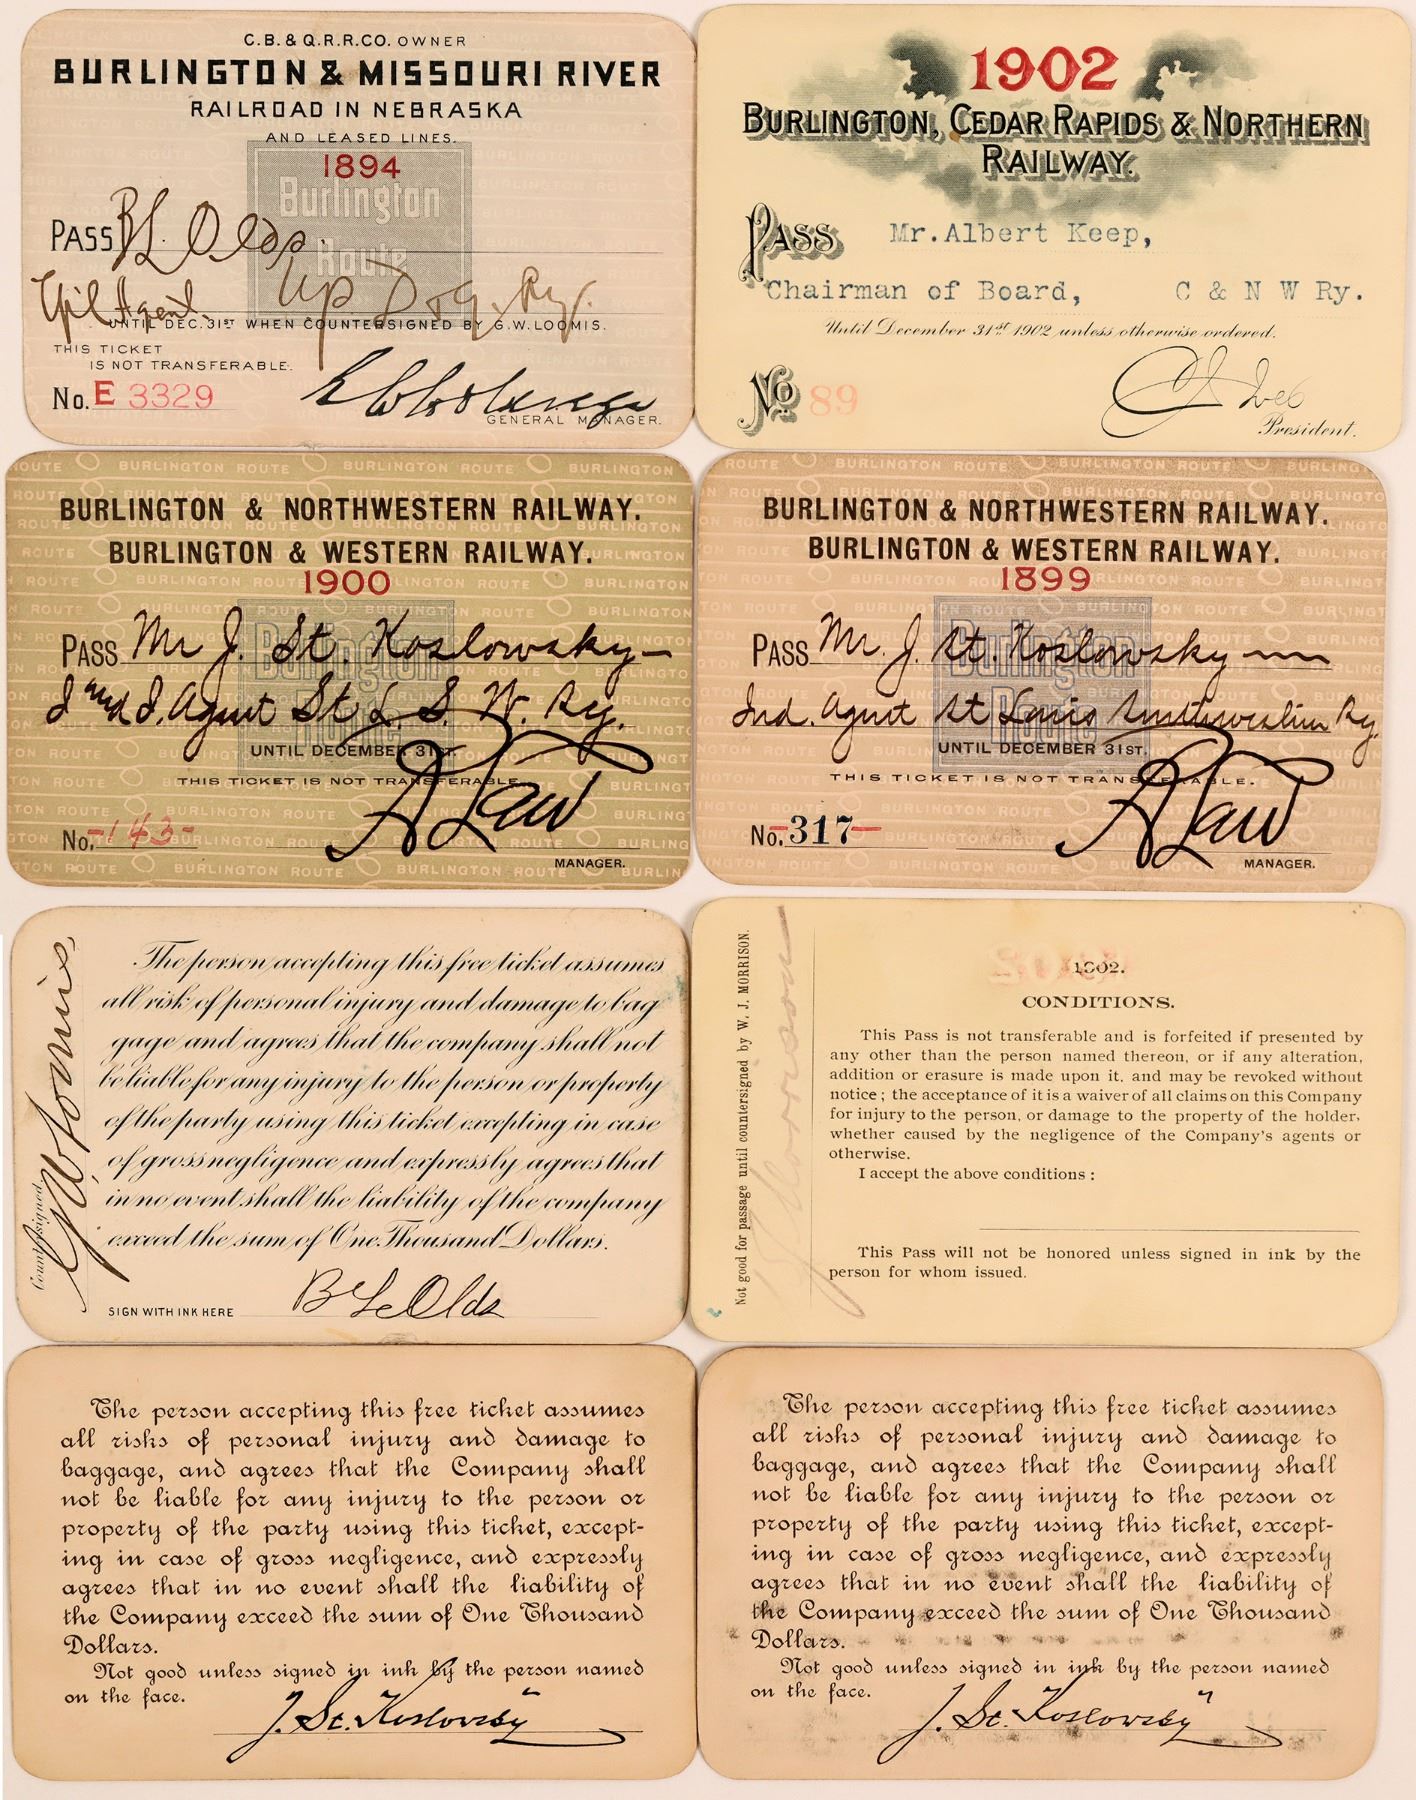 C.B. & Q.R.R.CO. OWNER
BURLINGTON & MISSOURI RIVER
RAILROAD IN NEBRASKA
AND LEASED LINES.
1894
Burlington
Route
PASS B L Olds
Agent. U P D & G. Ry.
UNTIL DEC. 31ST WHEN COUNTERSIGNED BY G.W. LOOMIS.
THIS TICKET
IS NOT TRANSFERABLE.
No. E 3329
GENERAL MANAGER.
1902
BURLINGTON, CEDAR RAPIDS & NORTHERN
RAILWAY.
PASS Mr. Albert Keep,
Chairman of Board, C & N W Ry.
Until December 31st 1902 unless otherwise ordered.
No 89
President.
BURLINGTON & NORTHWESTERN RAILWAY.
BURLINGTON & WESTERN RAILWAY.
1900
Burlington
Route
PASS Mr J. St. Koslowsky
Agent St L S. W. Ry.
UNTIL DECEMBER 31ST.
THIS TICKET IS NOT TRANSFERABLE.
No. -143-
Law
MANAGER.
BURLINGTON & NORTHWESTERN RAILWAY.
BURLINGTON & WESTERN RAILWAY.
1899
Burlington
Route
PASS Mr. J. St. Koslowsky
Ind. Agent St Louis Southwestern Ry.
UNTIL DECEMBER 31ST.
THIS TICKET IS NOT TRANSFERABLE.
No. -317-
Law
MANAGER.
Countersigned
G.W. Loomis,
The person accepting this free ticket assumes
all risk of personal injury and damage to bag
gage and agrees that the company shall not
be liable for any injury to the person or property
of the party using this ticket excepting in case
of gross negligence and expressly agrees that
in no event shall the liability of the company
exceed the sum of One Thousand Dollars.
SIGN WITH INK HERE B L Olds
Not good for passage until countersigned by W. J. MORRISON.
Morrison
1902.
CONDITIONS.
This Pass is not transferable and is forfeited if presented by
any other than the person named thereon, or if any alteration,
addition or erasure is made upon it, and may be revoked without
notice; the acceptance of it is a waiver of all claims on this Company
for injury to the person, or damage to the property of the holder,
whether caused by the negligence of the Company's agents or
otherwise.
I accept the above conditions:
This Pass will not be honored unless signed in ink by the
person for whom issued.
The person accepting this free ticket assumes
all risks of personal injury and damage to
baggage, and agrees that the Company shall
not be liable for any injury to the person or
property of the party using this ticket, except-
ing in case of gross negligence, and expressly
agrees that in no event shall the liability of
the Company exceed the sum of One Thousand
Dollars.
Not good unless signed in ink by the person named
on the face.
J. St. Koslowsky
The person accepting this free ticket assumes
all risks of personal injury and damage to
baggage, and agrees that the Company shall
not be liable for any injury to the person or
property of the party using this ticket, except-
ing in case of gross negligence, and expressly
agrees that in no event shall the liability of
the Company exceed the sum of One Thousand
Dollars.
Not good unless signed in ink by the person named
on the face.
J. St. Koslowsky